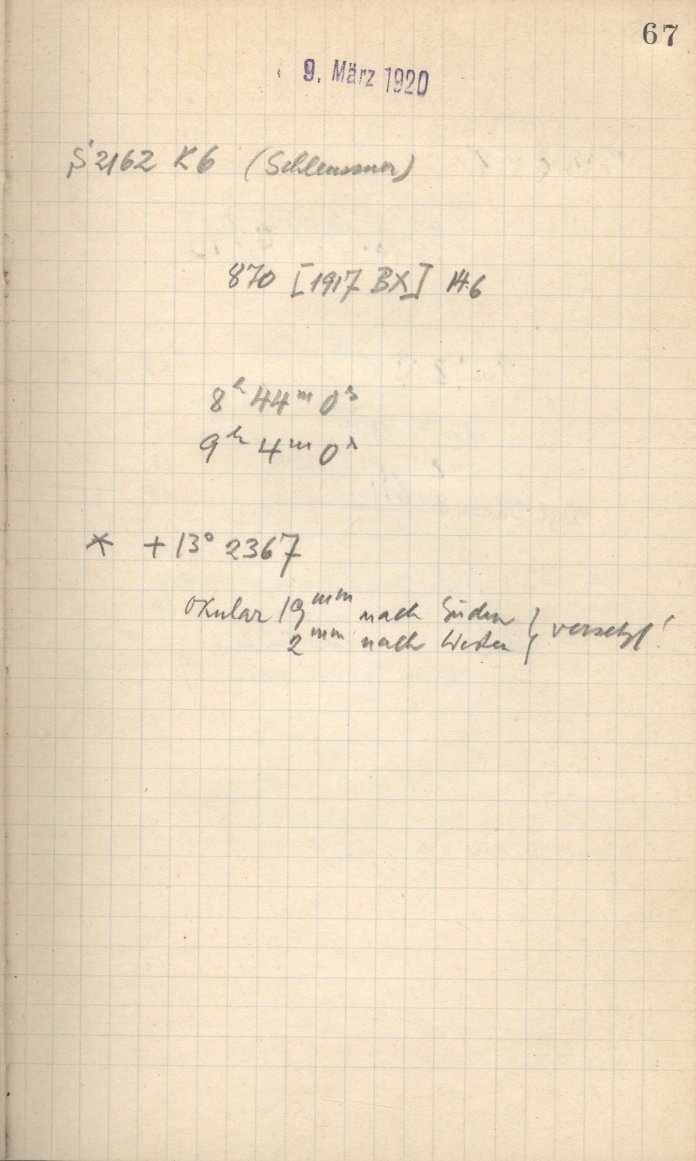 67
9. März 1920
S 2162 K6 (Schleussner)
870 [1917 BX] H6
8ʰ 44ᵐ 0ˢ
9ʰ 4ᵐ 0ˢ
* +13° 2367
Okular 19ᵐᵐ nach Süden } versetzt!
2ᵐᵐ nach Westen